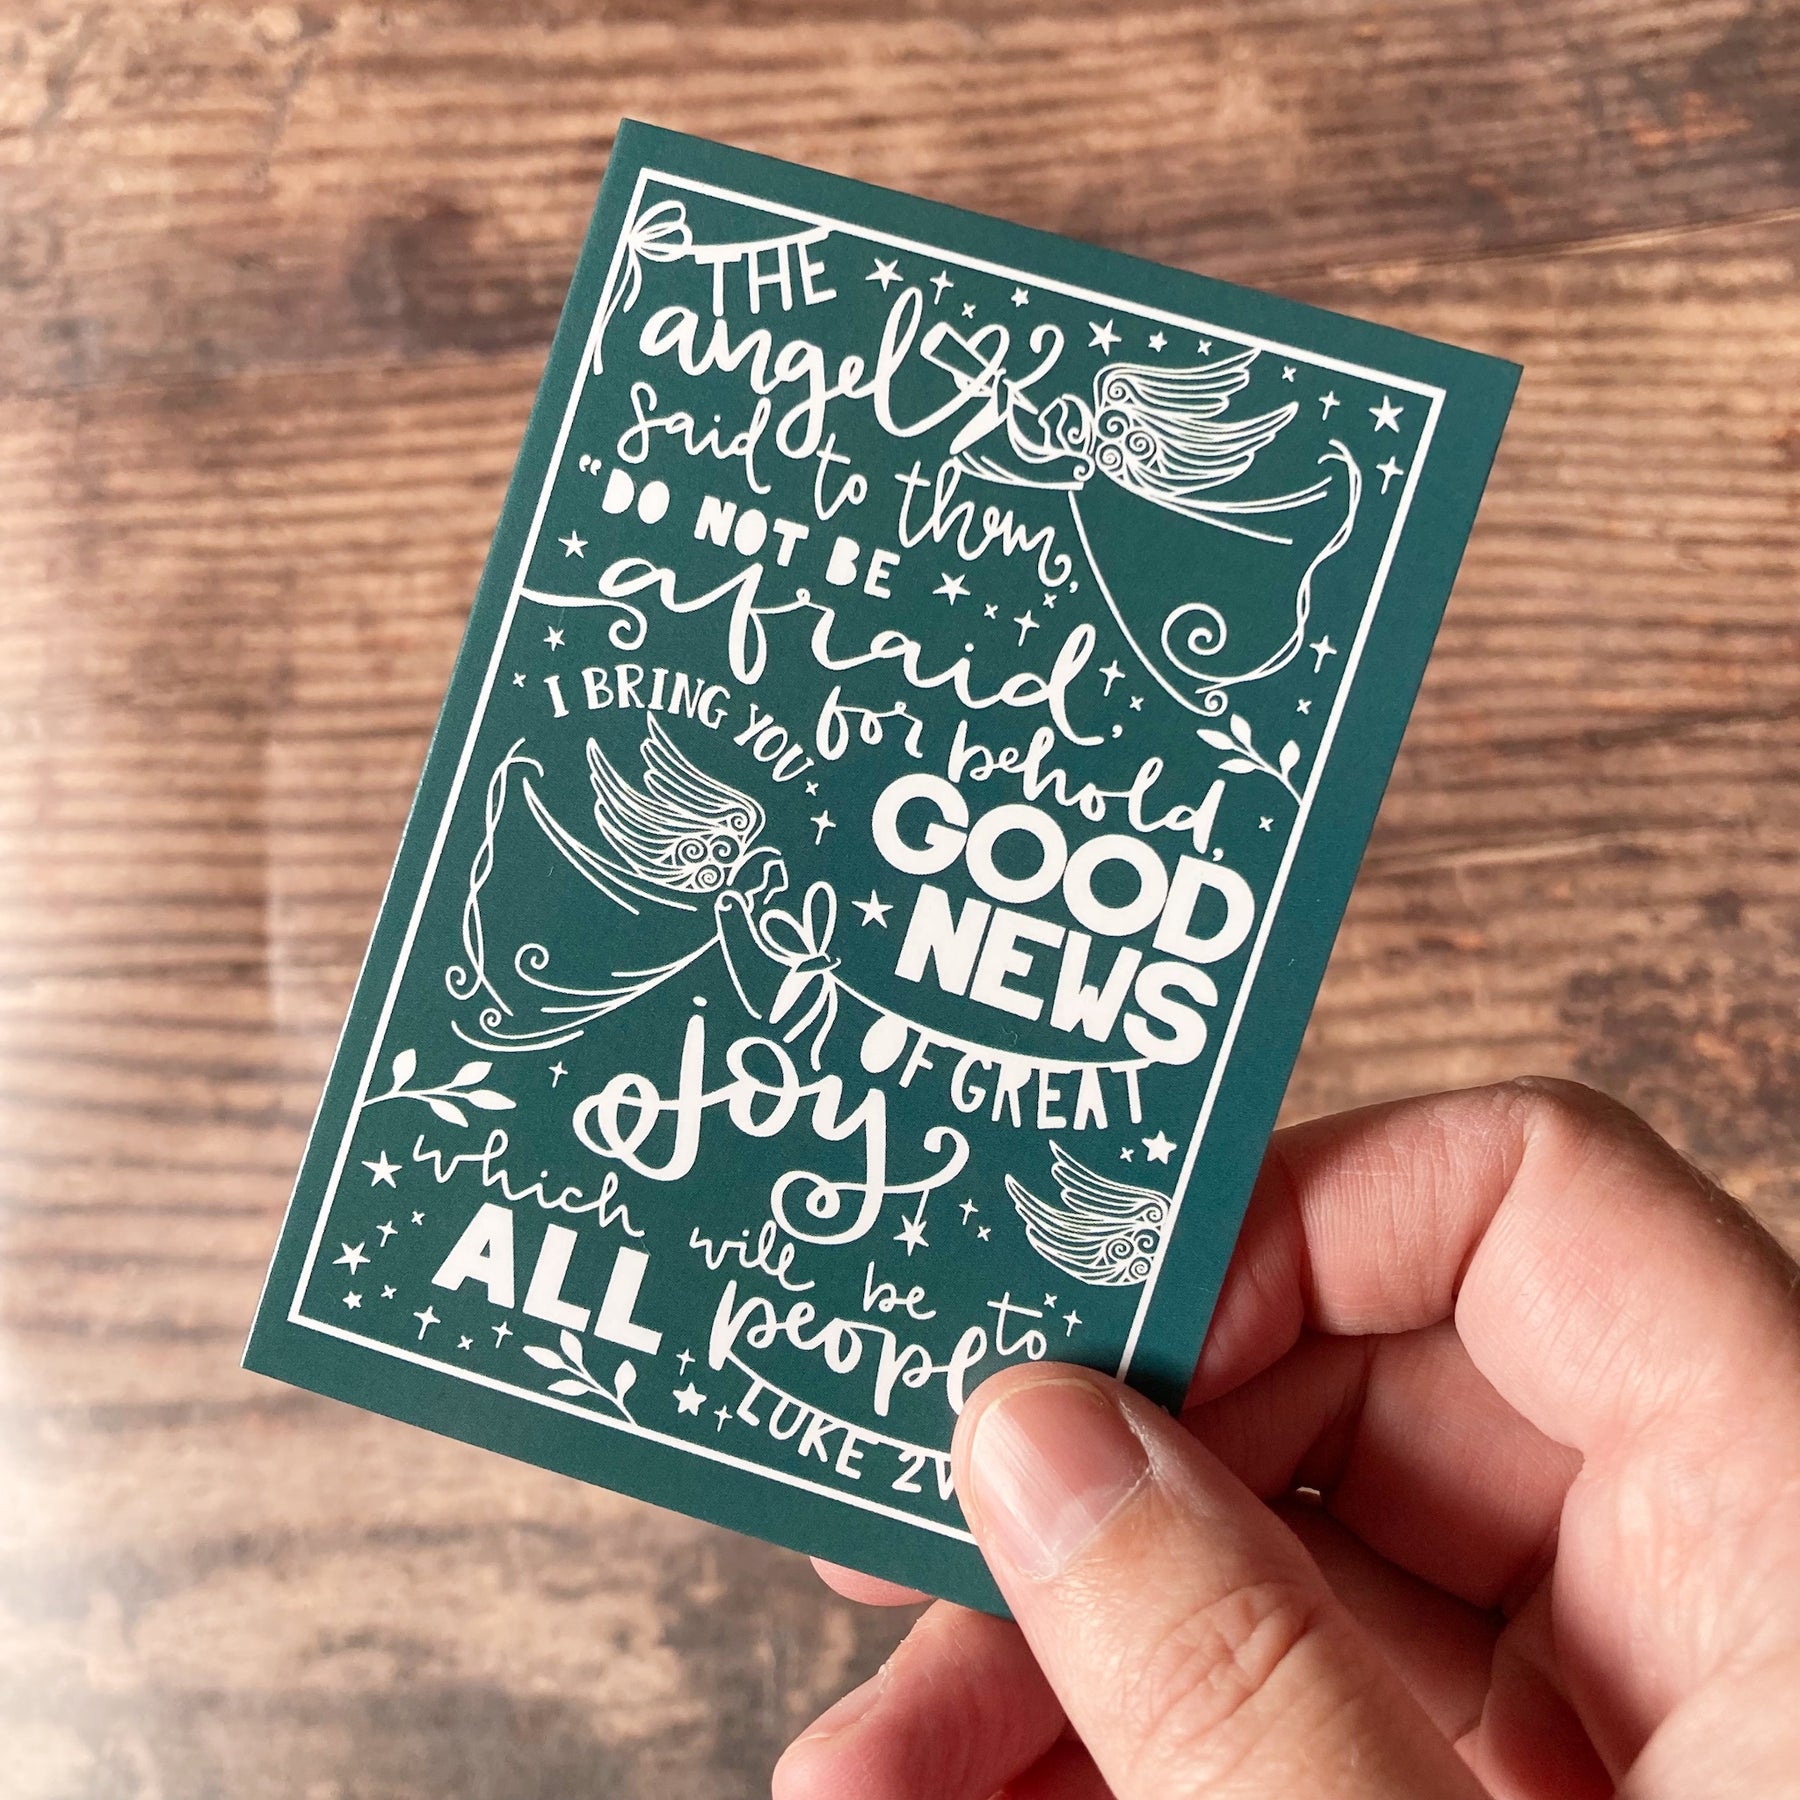 THE
angel
said to them,
"DO NOT BE
afraid,
for behold,
I BRING YOU
GOOD
NEWS
OF GREAT
joy
which will be to
ALL people
LUKE 2V